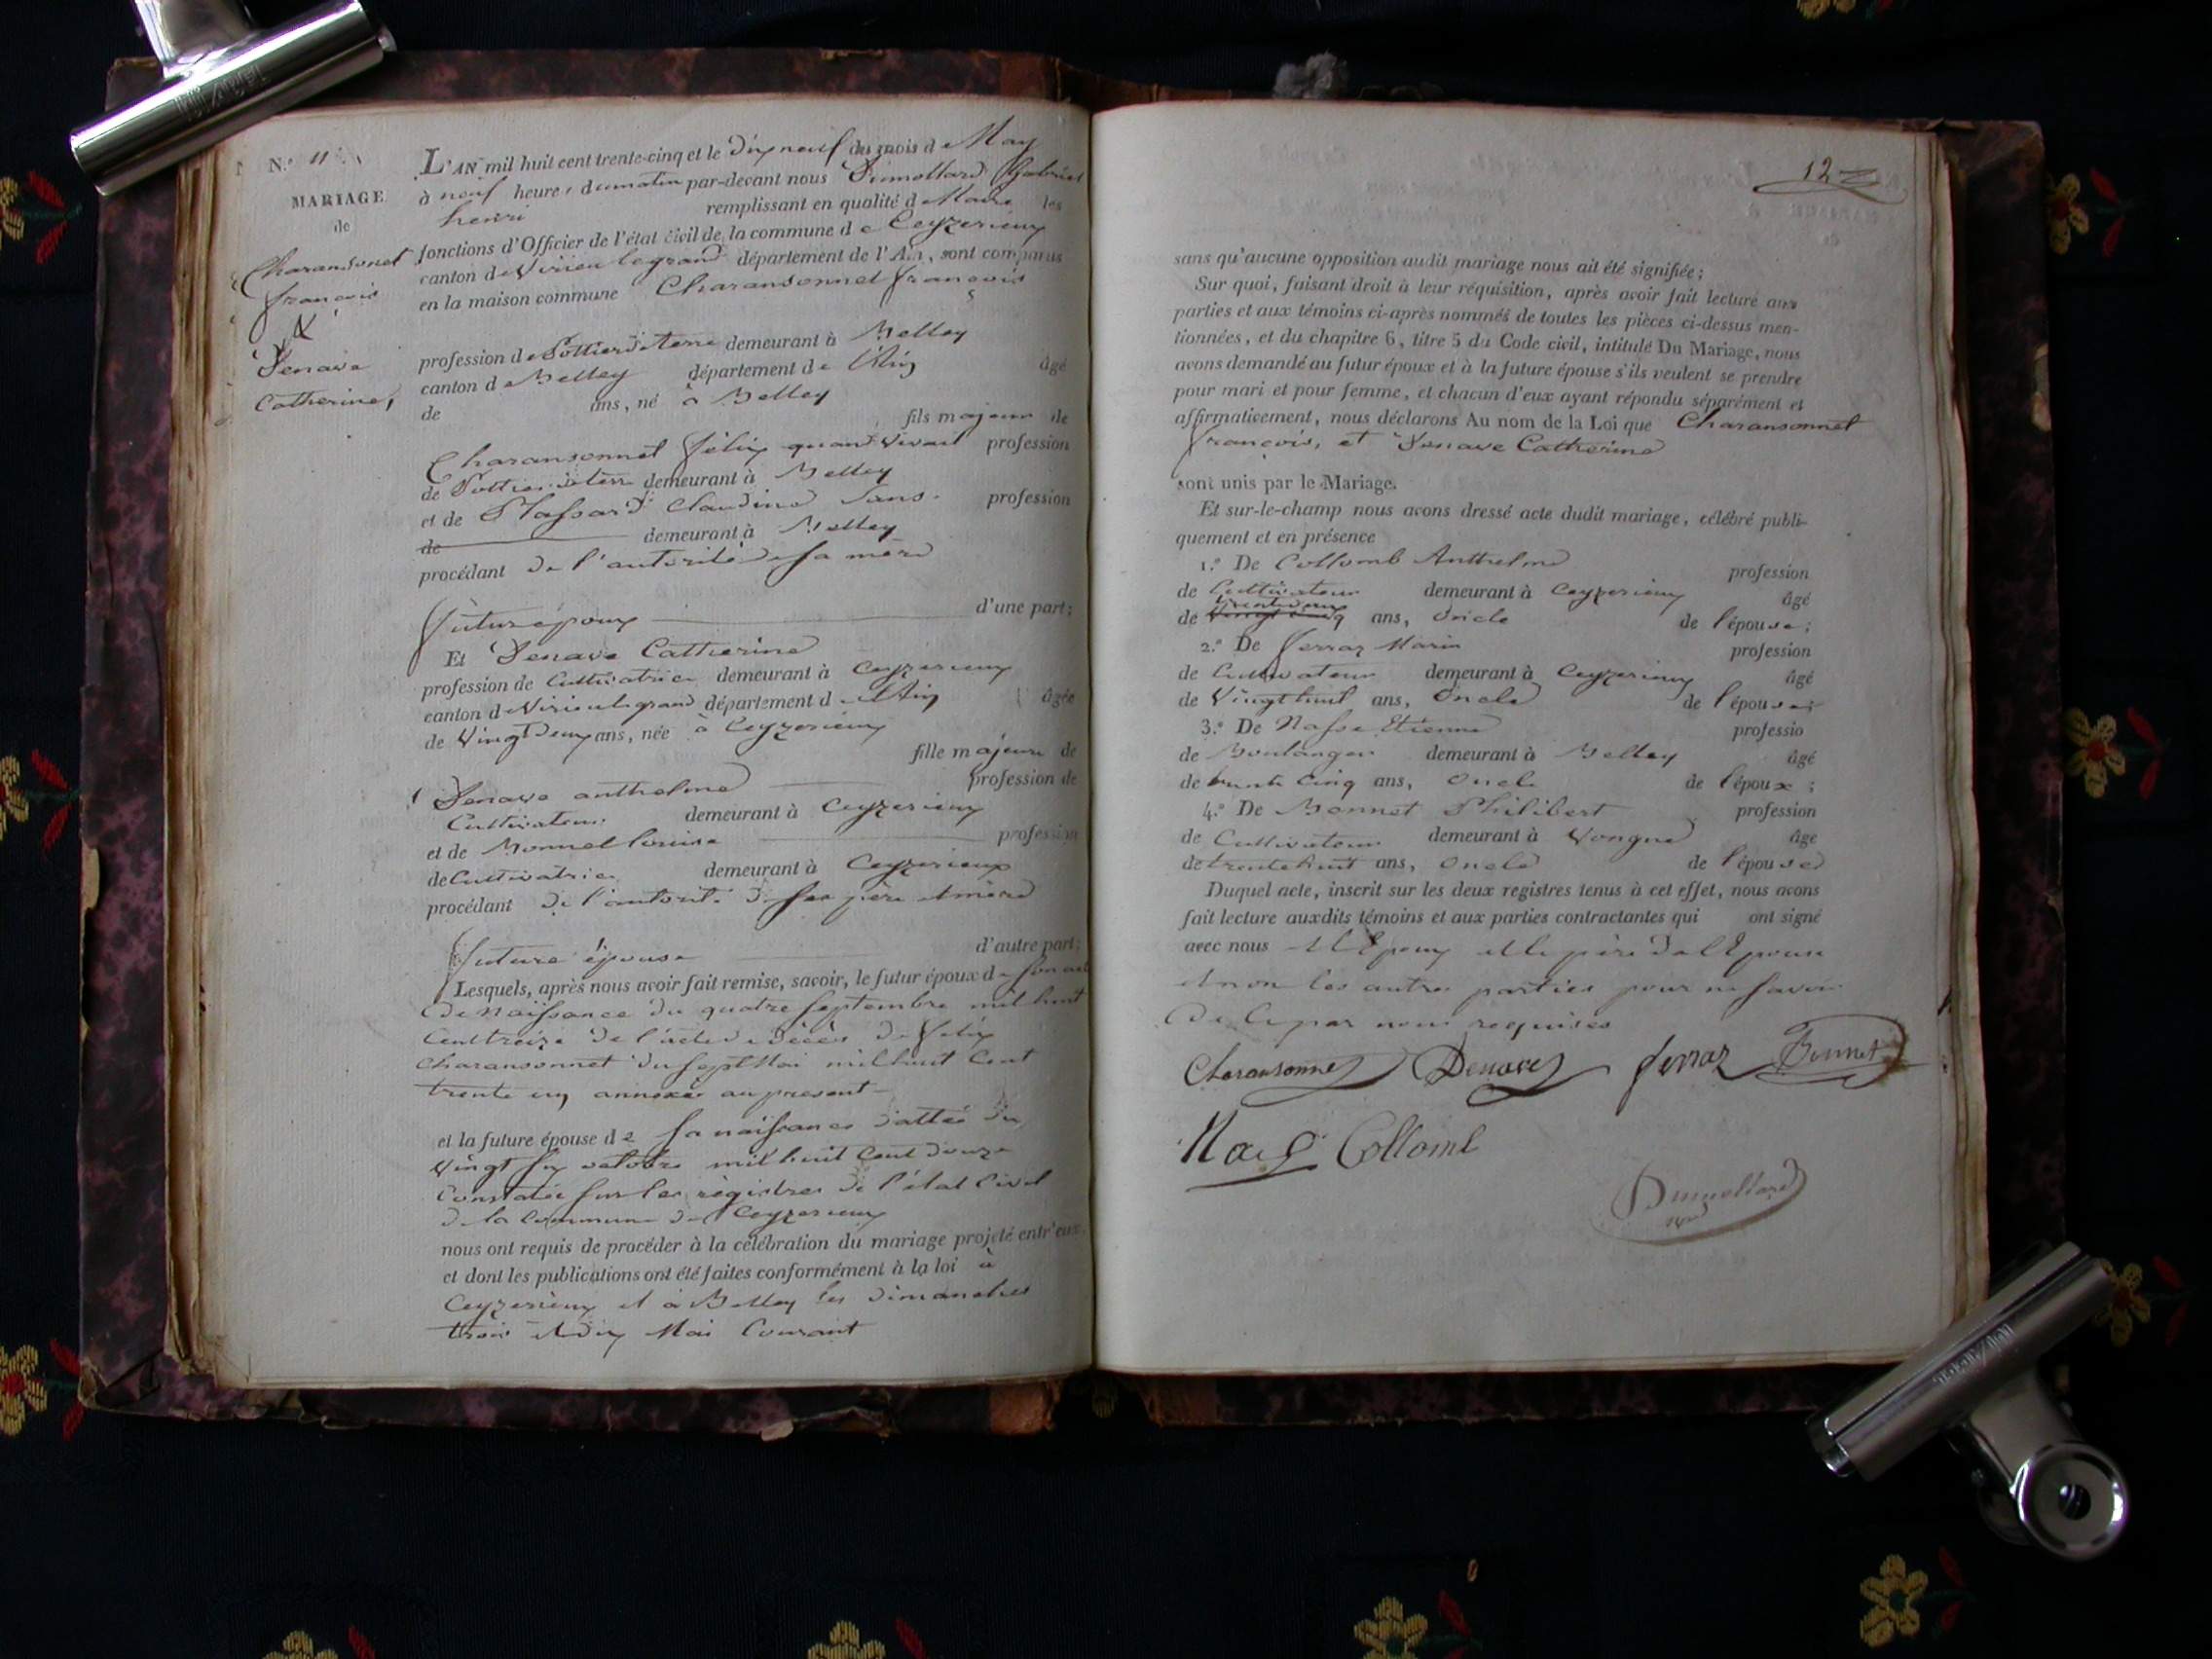 N.° 11
MARIAGE
de
Charansonnet
françois
&
Denave
Catherine,
L'AN mil huit cent trente-cinq et le dix neuf du mois de May
à neuf heures du matin par-devant nous Dumollard Gabriel
henri remplissant en qualité de Maire les
fonctions d'Officier de l'état civil de la commune de Ceyzerieux
canton de Virieu le grand département de l'Ain, sont comparus
en la maison commune Charansonnet françois
profession de Pottier de terre demeurant à Belley
canton de Belley département de l'Ain âgé
de ans, né à Belley
fils majeur de
Charansonnet félix quand vivait profession
de Pottier de terre demeurant à Belley
et de Massard Claudine sans profession
de demeurant à Belley
procédant de l'autorité de sa mère
future époux d'une part;
Et Denave Catherine
profession de Cultivatrice demeurant à Ceyzerieux
canton de Virieu le grand département de l'Ain âgée
de Vingt Deux ans, née à Ceyzerieux
fille majeure de
Denave anthelme profession de
Cultivateur demeurant à Ceyzerieux
et de Monnet louise profession
de Cultivatrice demeurant à Ceyzerieux
procédant de l'autorité de ses père et mère
future épouse d'autre part;
Lesquels, après nous avoir fait remise, savoir, le futur époux de son acte
de naissance du quatre septembre mil huit
cent treize de l'acte de décès de félix
charansonnet du sept Mai mil huit cent
trente un annexés au present
et la future épouse de sa naissance dattée du
vingt six octobre mil huit cent douze
constatée sur les registres de l'état civil
de la commune de Ceyzerieux
nous ont requis de procéder à la célébration du mariage projeté entr'eux,
et dont les publications ont été faites conformément à la loi à
Ceyzerieux et à Belley les dimanches
trois et dix Mai Courant
12
sans qu'aucune opposition audit mariage nous ait été signifiée;
Sur quoi, faisant droit à leur réquisition, après avoir fait lecture aux
parties et aux témoins ci-après nommés de toutes les pièces ci-dessus men-
tionnées, et du chapitre 6, titre 5 du Code civil, intitulé Du Mariage, nous
avons demandé au futur époux et à la future épouse s'ils veulent se prendre
pour mari et pour femme, et chacun d'eux ayant répondu séparément et
affirmativement, nous déclarons Au nom de la Loi que Charansonnet
françois, et Denave Catherine
sont unis par le Mariage.
Et sur-le-champ nous avons dressé acte dudit mariage, célébré publi-
quement et en présence
1.° De Collomb Anthelme profession
de Cultivateur demeurant à Ceyzerieux âgé
de ans, Oncle de l'épouse;
2.° De Ferraz Marin profession
de Cultivateur demeurant à Ceyzerieux âgé
de Vingt huit ans, Oncle de l'épouse;
3.° De Nasse Etienne professio
de Boulanger demeurant à Belley âgé
de trente cinq ans, Oncle de l'époux;
4.° De Monnet Philibert profession
de Cultivateur demeurant à Vongne âgé
de trente huit ans, Oncle de l'épouse
Duquel acte, inscrit sur les deux registres tenus à cet effet, nous avons
fait lecture auxdits témoins et aux parties contractantes qui ont signé
avec nous et l'Epoux et le père de l'Epouse
et non les autres parties pour ne savoir
de ce par nous requises
Charansonnet Denave ferraz
Collomb
Dumollard